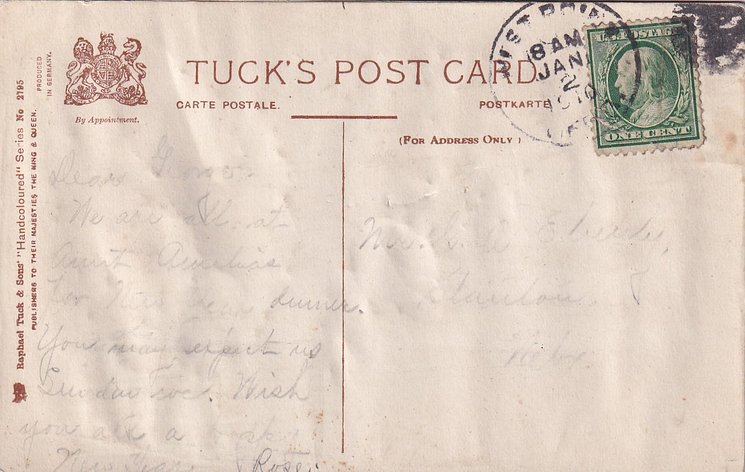 TUCK'S POST CARD.
CARTE POSTALE.
POSTKARTE
(FOR ADDRESS ONLY)
By Appointment.
PRODUCED
IN GERMANY.
Raphael Tuck & Sons' "Handcoloured" Series No 2195
PUBLISHERS TO THEIR MAJESTIES THE KING & QUEEN.
WEST POINT
8 AM
JAN
2
1910
U.S. POSTAGE
ONE CENT
Dear
We are all at
Aunt Amelias
for New Year dinner.
You may expect us
Sunday eve. Wish
you all a
New Year Rose.